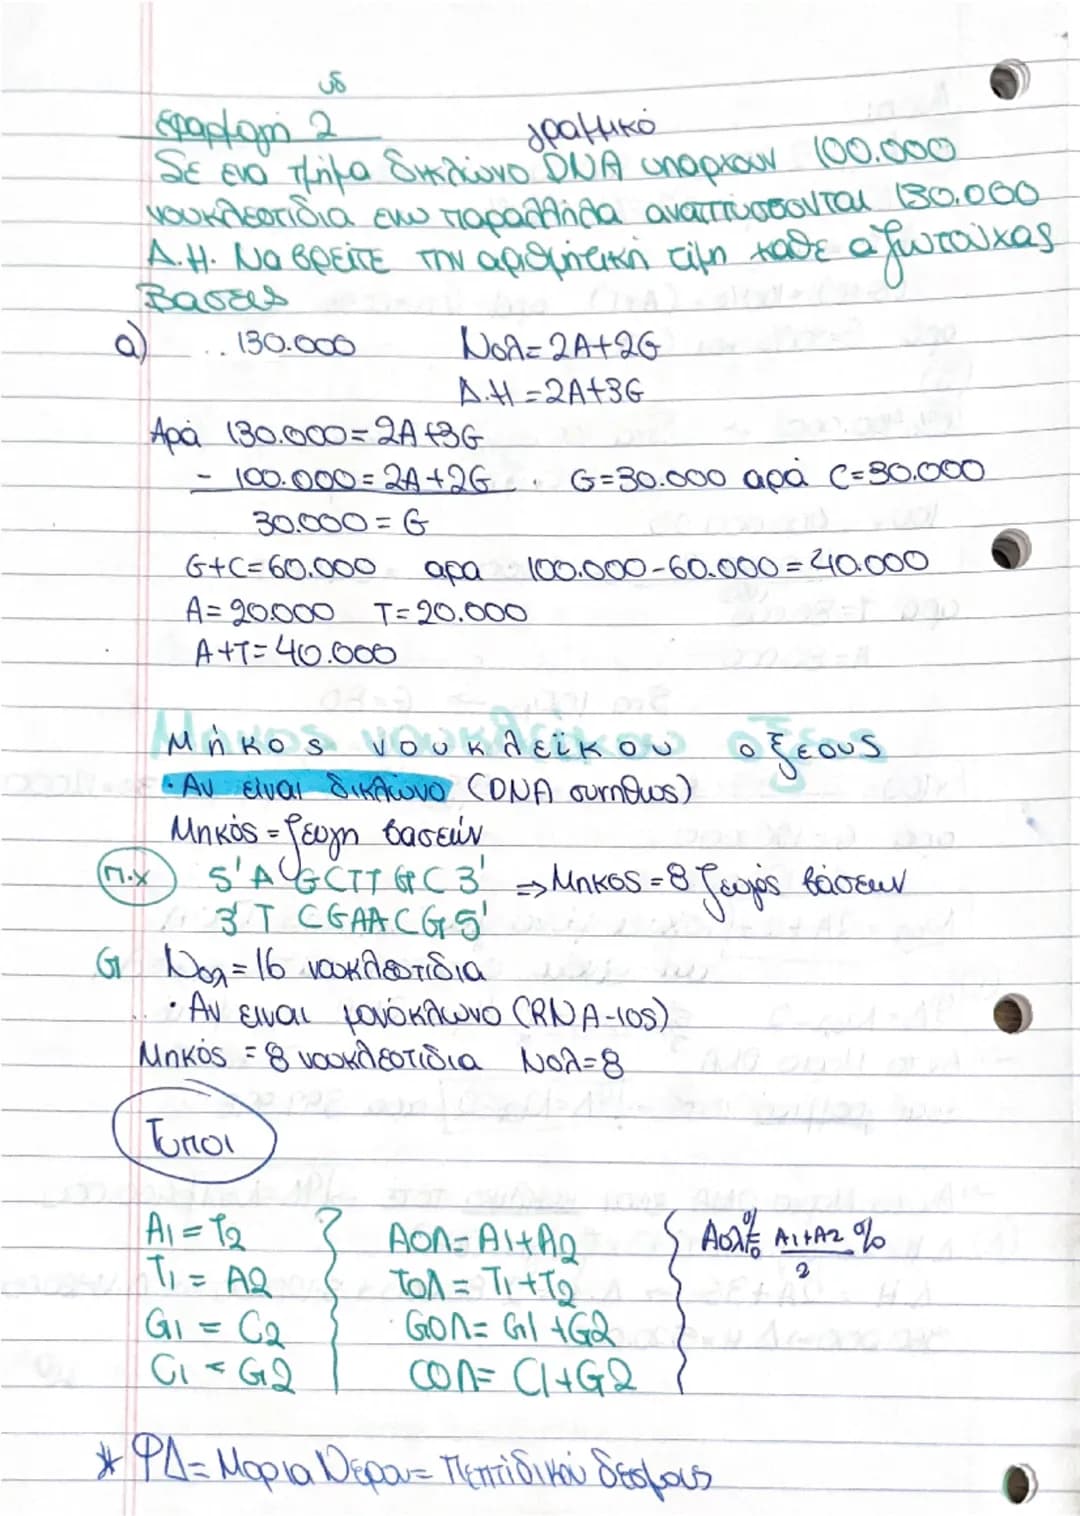 υδ
Εφαρμογή 2 γραμμικό
Σε ενα τμήμα δικλωνο DNA υπαρχουν 100.000
νουκλεοτιδια ενω παραλληλα αναπτυσσονται 130.000
Δ.Η. Να βρειτε την αριθμητική τιμη καθε αζωτούχας
Βασεις
α) .. 130.000 Νολ=2A+2G
Δ.Η=2A+3G
Αρά 130.000=2A+3G
- 100.000=2A+2G. G=30.000 αρά C=30.000
30.000=G
G+C=60.000 αρα 100.000-60.000=40.000
A=20.000 T=20.000
A+T=40.000
Μήκος νουκλεϊκου οξεους
• Αν ειναι δικλωνο (DNA συνηθως)
Μηκός = ζευγη βασεών
Π.Χ 5' A GCTT GC 3' ⇒ Μηκος = 8 ζευγός βάσεων
3' T CGAACG 5'
G Νολ=16 νουκλεοτιδια
• Αν ειναι μονόκλωνο (RNA-ιος)
Μηκός = 8 νουκλεοτιδια Νολ=8
Τυποι
A1=T2 } AΟΛ=A1+A2 { Aολ%= A1+A2 % / 2
T1=A2 TΟΛ=T1+T2
G1=C2 GΟΛ=G1+G2
C1=G2 CΟΛ=C1+G2
* ΦΔ= Μορια Νερου= Πεπτιδικου δεσμους